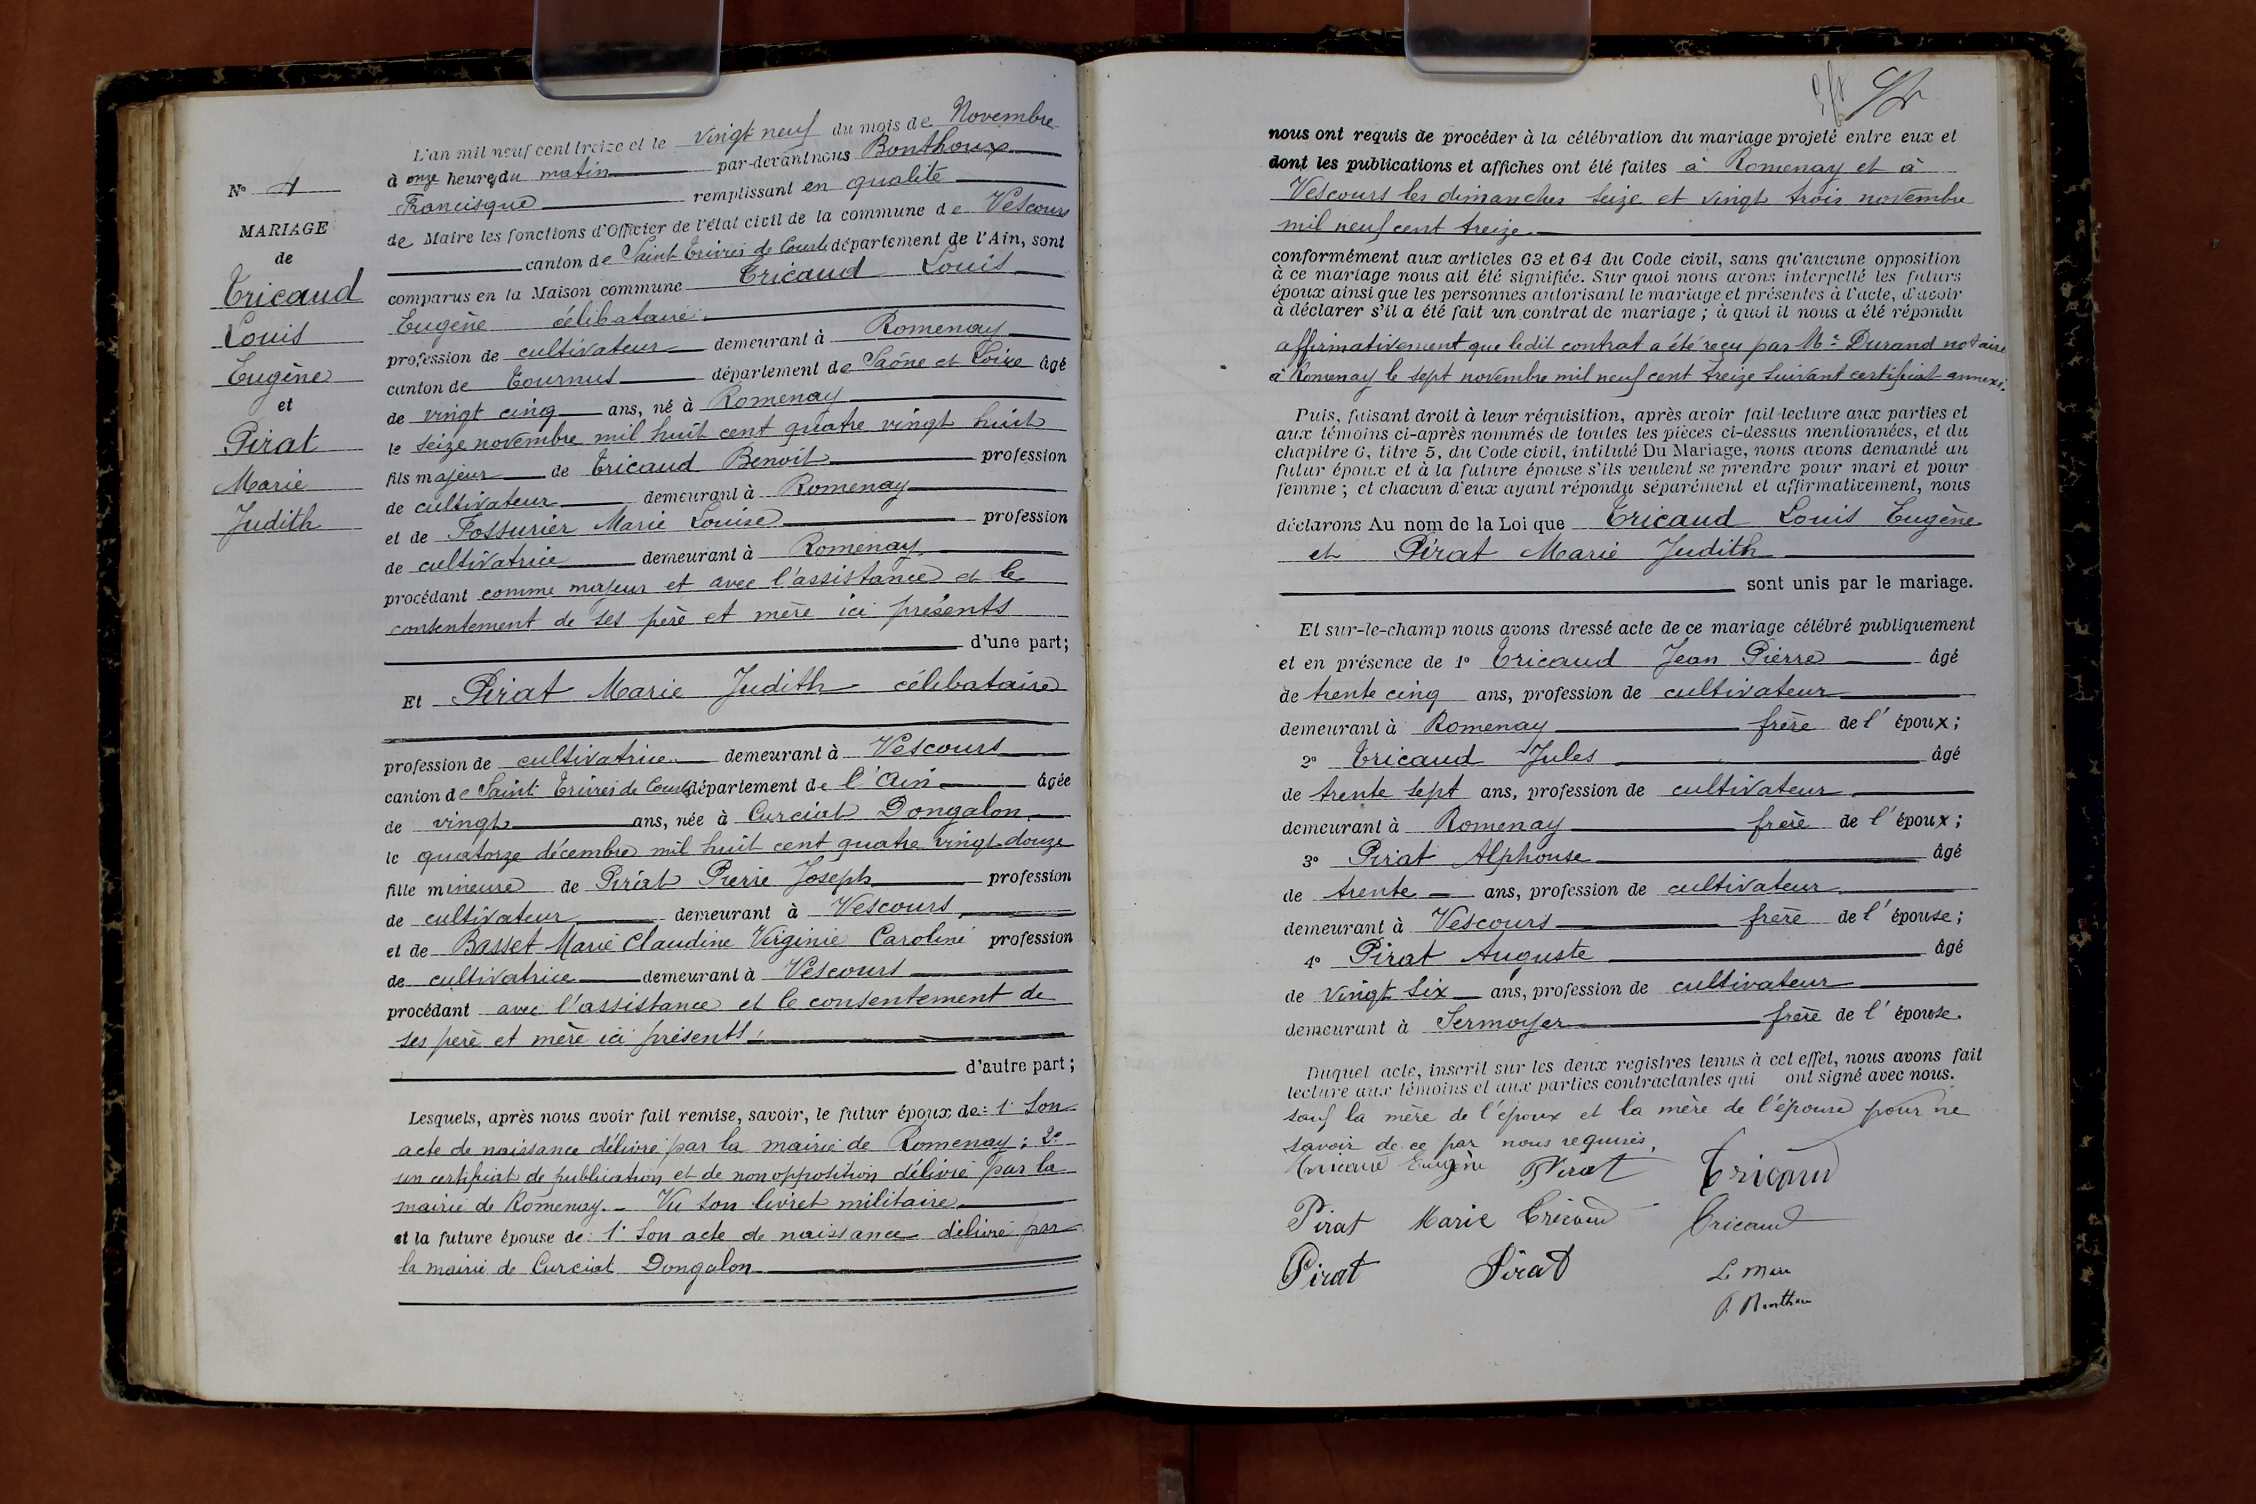 N° 4
MARIAGE
de
Tricaud
Louis
Eugène
et
Pirat
Marie
Judith
L'an mil neuf cent treize et le vingt neuf du mois de Novembre
à onze heures du matin par-devant nous Bonthoux
Francisque remplissant en qualité
de Maire les fonctions d'Officier de l'état civil de la commune de Vescours
canton de Saint Trivier de Courtes département de l'Ain, sont
comparus en la Maison commune Tricaud Louis
Eugène célibataire
profession de cultivateur demeurant à Romenay
canton de Tournus département de Saône et Loire âgé
de vingt cinq ans, né à Romenay
le seize novembre mil huit cent quatre vingt huit
fils majeur de Tricaud Benoit profession
de cultivateur demeurant à Romenay
et de Fossurier Marie Louise profession
de cultivatrice demeurant à Romenay
procédant comme majeur et avec l'assistance et le
consentement de ses père et mère ici présents
d'une part;
Et Pirat Marie Judith célibataire
profession de cultivatrice demeurant à Vescours
canton de Saint Trivier de Courtes département de l'Ain âgée
de vingt ans, née à Curciat Dongalon
le quatorze décembre mil huit cent quatre vingt douze
fille mineure de Pirat Pierre Joseph profession
de cultivateur demeurant à Vescours
et de Basset Marie Claudine Virginie Caroline profession
de cultivatrice demeurant à Vescours
procédant avec l'assistance et le consentement de
ses père et mère ici présents
d'autre part;
Lesquels, après nous avoir fait remise, savoir, le futur époux de: 1° Son
acte de naissance délivré par la mairie de Romenay; 2°
un certificat de publication et de non opposition délivré par la
mairie de Romenay. - Vu son livret militaire
et la future épouse de: 1° Son acte de naissance délivré par
la mairie de Curciat Dongalon
nous ont requis de procéder à la célébration du mariage projeté entre eux et
dont les publications et affiches ont été faites à Romenay et à
Vescours les dimanches seize et vingt trois novembre
mil neuf cent treize
conformément aux articles 63 et 64 du Code civil, sans qu'aucune opposition
à ce mariage nous ait été signifiée. Sur quoi nous avons interpellé les futurs
époux ainsi que les personnes autorisant le mariage et présentes à l'acte, d'avoir
à déclarer s'il a été fait un contrat de mariage; à quoi il nous a été répondu
affirmativement que ledit contrat a été reçu par Me Durand notaire
à Romenay le sept novembre mil neuf cent treize suivant certificat annexé.
Puis, faisant droit à leur réquisition, après avoir fait lecture aux parties et
aux témoins ci-après nommés de toutes les pièces ci-dessus mentionnées, et du
chapitre 6, titre 5, du Code civil, intitulé Du Mariage, nous avons demandé au
futur époux et à la future épouse s'ils veulent se prendre pour mari et pour
femme; et chacun d'eux ayant répondu séparément et affirmativement, nous
déclarons Au nom de la Loi que Tricaud Louis Eugène
et Pirat Marie Judith
sont unis par le mariage.
Et sur-le-champ nous avons dressé acte de ce mariage célébré publiquement
et en présence de 1° Tricaud Jean Pierre âgé
de trente cinq ans, profession de cultivateur
demeurant à Romenay frère de l'époux;
2° Tricaud Jules âgé
de trente sept ans, profession de cultivateur
demeurant à Romenay frère de l'époux;
3° Pirat Alphonse âgé
de trente ans, profession de cultivateur
demeurant à Vescours frère de l'épouse;
4° Pirat Auguste âgé
de vingt six ans, profession de cultivateur
demeurant à Sermoyer frère de l'épouse.
Duquel acte, inscrit sur les deux registres tenus à cet effet, nous avons fait
lecture aux témoins et aux parties contractantes qui ont signé avec nous.
sauf la mère de l'époux et la mère de l'épouse pour ne
savoir de ce par nous requises.
Tricaud Eugène Pirat Tricaud
Pirat Marie Tricaud Tricaud
Pirat Pirat Le Maire
F. Bonthoux